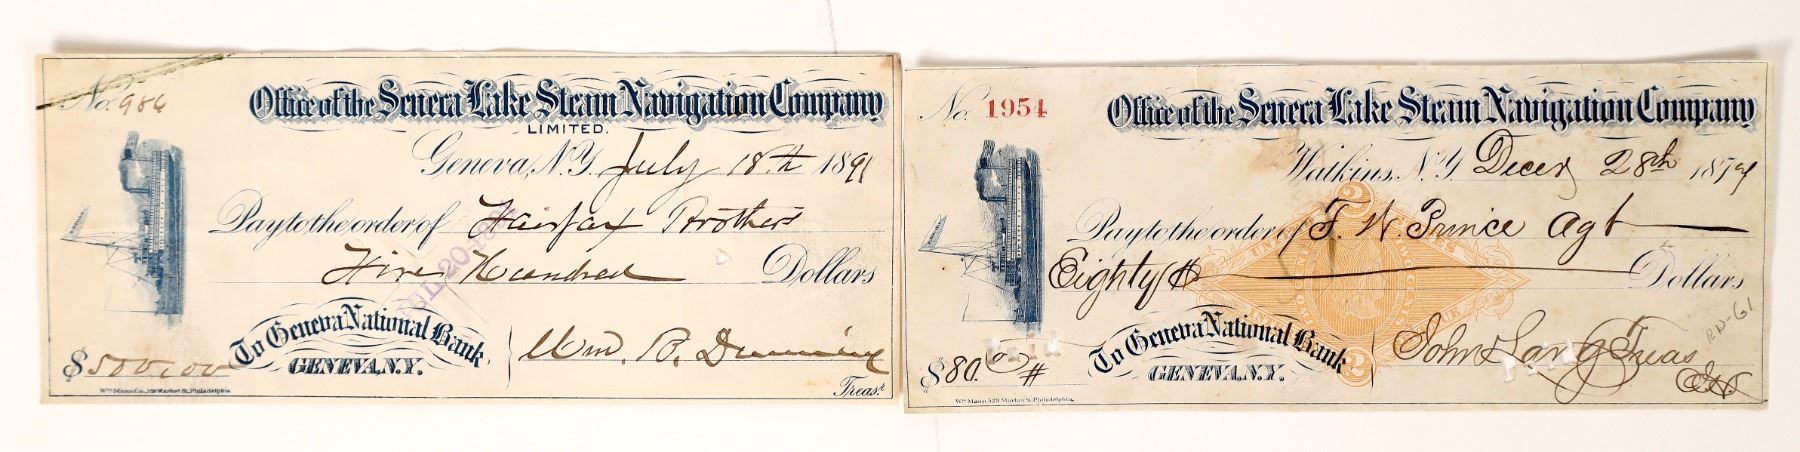 No. 986
Office of the Seneca Lake Steam Navigation Company
LIMITED.
Geneva, N.Y. July 18th 1891
Pay to the order of Fairfax Brothers
Five Hundred Dollars
To Geneva National Bank,
GENEVA, N.Y.
$ 500.00
Wm. B. Dunning
Treasr.
Wm Mann Co., 529 Market St. Philadelphia
No. 1954
Office of the Seneca Lake Steam Navigation Company
Watkins, N.Y. Decer 28th 1874
Pay to the order of F. W. Prince Agt
Eighty # Dollars
To Geneva National Bank
GENEVA, N.Y.
$ 80.00 #
John Lang Treas
RN-G1
Wm Mann, 529 Market St. Philadelphia